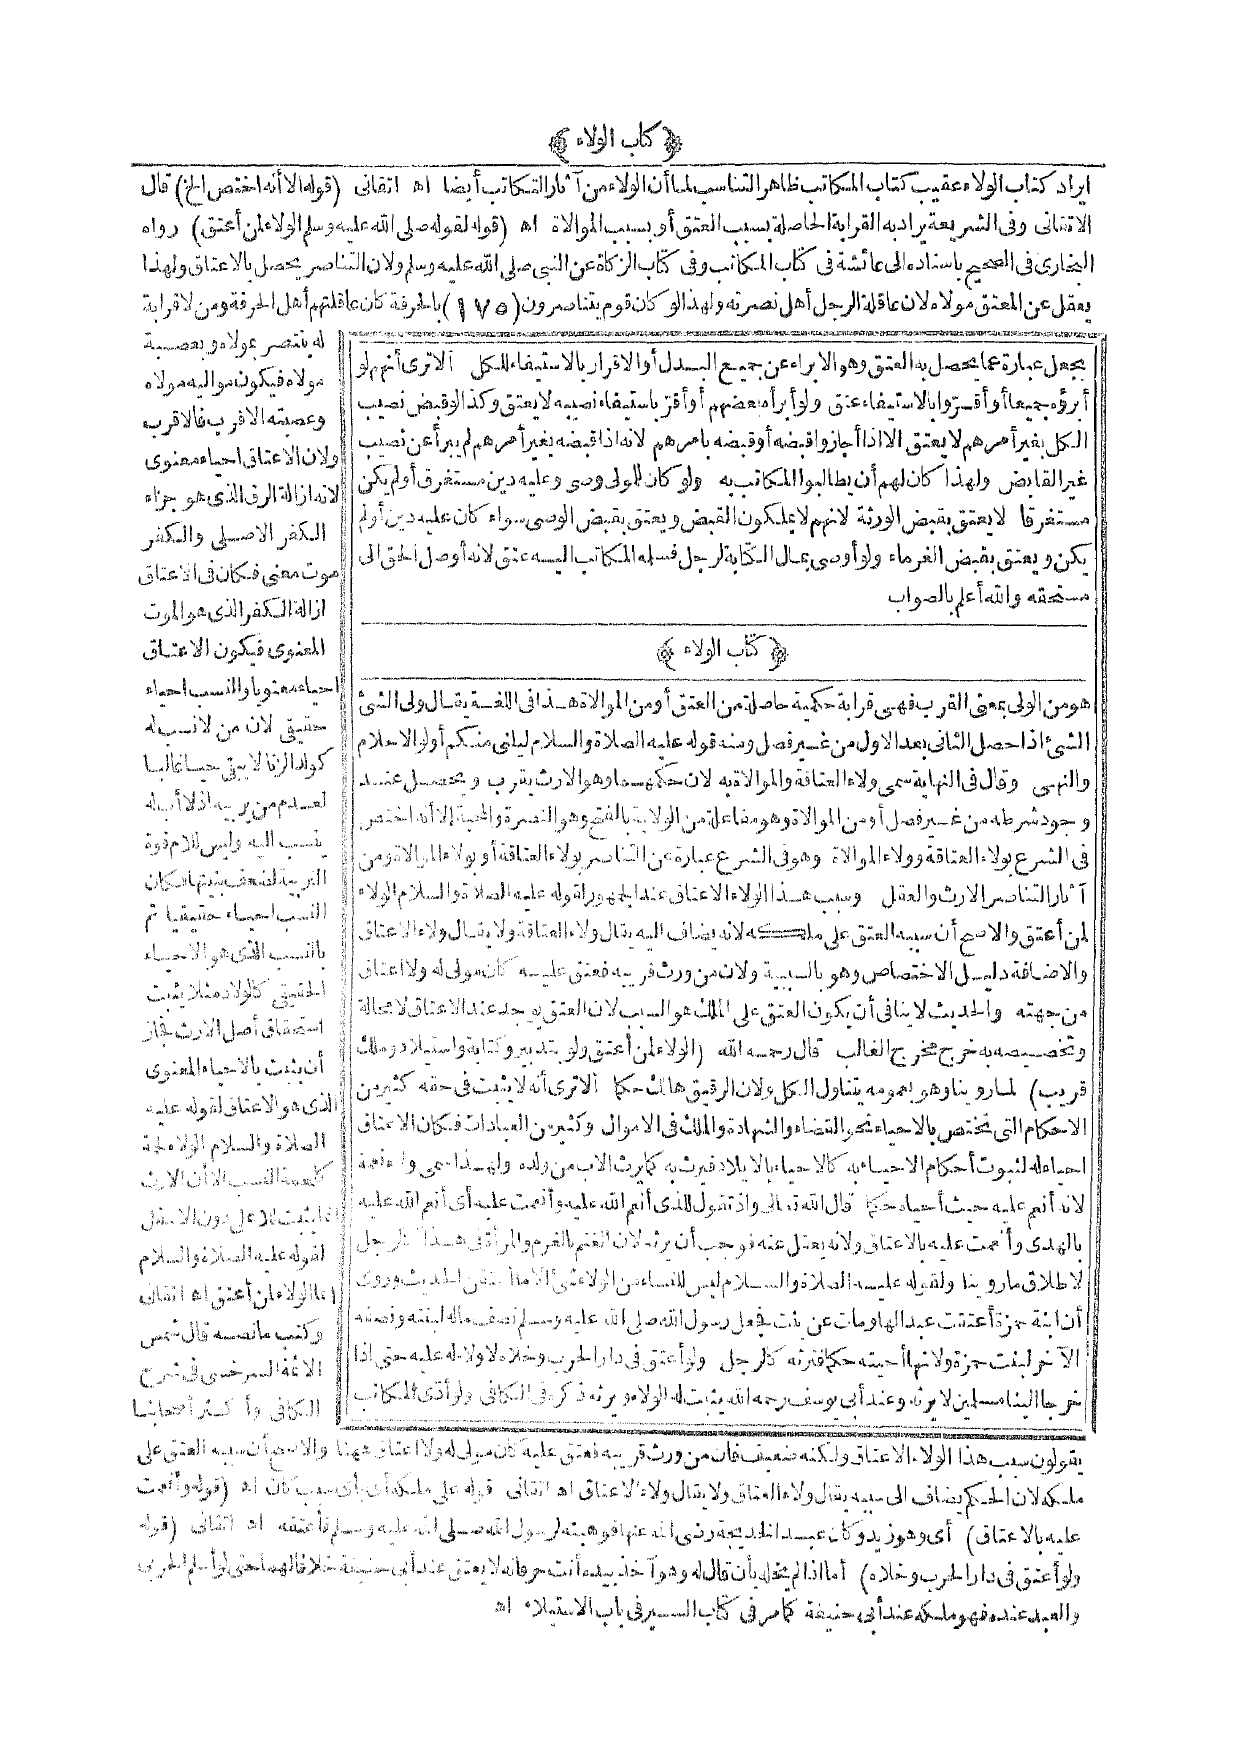 ﴿ كتاب الولاء ﴾
ايراد كتاب الولاء عقيب كتاب المكاتب ظاهر التناسب لما أن الولاء من آثار التكاتب أيضا اه اتقانى (قوله الا أنه اختص الخ) قال
الاتقانى وفى الشريعة يراد به القرابة الحاصلة بسبب العتق أو بسبب الموالاة اه (قوله لقوله صلى الله عليه وسلم الولاء لمن أعتق) رواه
البخارى فى الصحيح باسناده الى عائشة فى كتاب المكاتب وفى كتاب الزكاة عن النبى صلى الله عليه وسلم ولان التناصر يحصل بالاعتاق ولهذا
يعقل عن المعتق مولاه لان عاقلة الرجل أهل نصرته ولهذا لو كان قوم يتناصرون (١٧٥) بالحرفة كان عاقلتهم أهل الحرفة ومن لا قرابة
له ينتصر بمولاه وبعصبة
مولاه فيكون مواليه مولاه
وعصبته الاقرب فالاقرب
ولان الاعتاق احياء معنوى
لانه ازالة الرق الذى هو جزاء
الكفر الاصلى والكفر
موت معنى فكان فى الاعتاق
ازالة الكفر الذى هو الموت
المعنوى فيكون الاعتاق
احياء معنويا والنسب احياء
حقيقى لان من لا نسب له
كولد الزنا لا يبقى حيا غالبا
لعدم من يربيه اذ لا أب له
ينسب اليه وليس للام قوة
التربية لضعف بنيتها فكان
النسب احياء حقيقيا ثم
بالنسب الذى هو الاحياء
الحقيقى كالولاد مثلا يثبت
استحقاق أصل الارث فجاز
أن يثبت بالاحياء المعنوى
الذى هو الاعتاق لقوله عليه
الصلاة والسلام الولاء لحمة
كلحمة النسب الا أن الارث
انما يثبت للاعلى دون الاسفل
لقوله عليه الصلاة والسلام
انما الولاء لمن أعتق اه اتقانى
وكتب ما نصه قال شمس
الائمة السرخسى فى شرح
الكافى وأكثر أصحابنا
يجعل عبارة عما يحصل به العتق وهو الابراء عن جميع البدل أو الاقرار بالاستيفاء للكل ألا ترى أنهم لو
أبرؤه جميعا أو أقروا بالاستيفاء عتق ولو أبرأه بعضهم أو أقر باستيفاء نصيبه لا يعتق وكذا لو قبض نصيب
الكل بغير أمرهم لا يعتق الا اذا أجازوا قبضه أو قبضه بامرهم لانه اذا قبضه بغير أمرهم لم يبرأ عن نصيب
غير القابض ولهذا كان لهم أن يطالبوا المكاتب به ولو كان للمولى وصى وعليه دين مستغرق أو لم يكن
مستغرقا لا يعتق بقبض الورثة لانهم لا يملكون القبض ويعتق بقبض الوصى سواء كان عليه دين أو لم
يكن ويعتق بقبض الغرماء ولو أوصى بمال الكتابة لرجل فسلمه المكاتب اليه عتق لانه أوصل الحق الى
مستحقه والله أعلم بالصواب
﴿ كتاب الولاء ﴾
هو من الولى بمعنى القرب فهى قرابة حكمية حاصلة من العتق أو من الموالاة هذا فى اللغة يقال ولى الشئ
الشئ اذا حصل الثانى بعد الاول من غير فصل ومنه قوله عليه الصلاة والسلام ليلنى منكم أولو الاحلام
والنهى وقال فى النهاية سمى ولاء العتاقة والموالاة به لان حكمهما وهو الارث يقرب ويحصل عند
وجود شرطه من غير فصل أو من الموالاة وهو مفاعلة من الولاية بالفتح وهو النصرة والمحبة إلا أنه اختص
فى الشرع بولاء العتاقة وولاء الموالاة وهو فى الشرع عبارة عن التناصر بولاء العتاقة أو بولاء الموالاة ومن
آثار التناصر الارث والعقل وسبب هذا الولاء الاعتاق عند الجمهور لقوله عليه الصلاة والسلام الولاء
لمن أعتق والاصح أن سببه العتق على ملكه لانه يضاف اليه يقال ولاء العتاقة ولا يقال ولاء الاعتاق
والاضافة دليل الاختصاص وهو بالسببية ولان من ورث قريبه فعتق عليه كان مولى له ولا اعتاق
من جهته والحديث لا ينافى أن يكون العتق على الملك هو السبب لان العتق يوجد عند الاعتاق لا محالة
وتخصيصه به خرج مخرج الغالب قال رحمه الله (الولاء لمن أعتق ولو بتدبير وكتابة واستيلاد وملك
قريب) لما روينا وهو بعمومه يتناول الكل ولان الرقيق هالك حكما ألا ترى أنه لا يثبت فى حقه كثير من
الاحكام التى تختص بالاحياء نحو القضاء والشهادة والملك فى الاموال وكثير من العبادات فكان الاعتاق
احياء له لثبوت أحكام الاحياء به كالاحياء بالايلاد فيرث به كما يرث الاب من ولده ولهذا سمى ولاء نعمة
لانه أنعم عليه حيث أحياه حكما قال الله تعالى واذ تقول للذى أنعم الله عليه وأنعمت عليه أى أنعم الله عليه
بالهدى وأنعمت عليه بالاعتاق ولانه يعقل عنه فوجب أن يرثه لان الغنم بالغرم والمرأة فى هذا كالرجل
لاطلاق ما روينا ولقوله عليه الصلاة والسلام ليس للنساء من الولاء شئ الا ما أعتقن الحديث وروى
أن ابنة حمزة أعتقت عبدا لها ومات عن بنت فجعل رسول الله صلى الله عليه وسلم نصف ماله لبنته ونصفه
الآخر لبنت حمزة ولانها أحيته حكما فترثه كالرجل ولو أعتق فى دار الحرب وخلاه لا ولاء له عليه حتى اذا
خرجا الينا مسلمين لا يرثه وعند أبى يوسف رحمه الله يثبت له الولاء ويرثه ذكره فى الكافى ولو أدى المكاتب
يقولون سبب هذا الولاء الاعتاق ولكنه ضعيف فان من ورث قريبه فعتق عليه كان مولى له ولا اعتاق ههنا والاصح أن سببه العتق على
ملكه لان الحكم يضاف الى سببه يقال ولاء العتاق ولا يقال ولاء الاعتاق اه اتقانى قوله على ملكه أى بأى سبب كان اه (قوله وأنعمت
عليه بالاعتاق) أى وهو زيد وكان عبد الخديجة رضى الله عنها فوهبته لرسول الله صلى الله عليه وسلم فأعتقه اه اتقانى (قوله
ولو أعتق فى دار الحرب وخلاه) أما اذا لم يخله بأن قال له وهو آخذ بيده أنت حر فانه لا يعتق عند أبى حنيفة خلافا لهما حتى لو أسلم الحربى
والعبد عنده فهو ملكه عند أبى حنيفة كما مر فى كتاب السير فى باب الاستيلاء اه